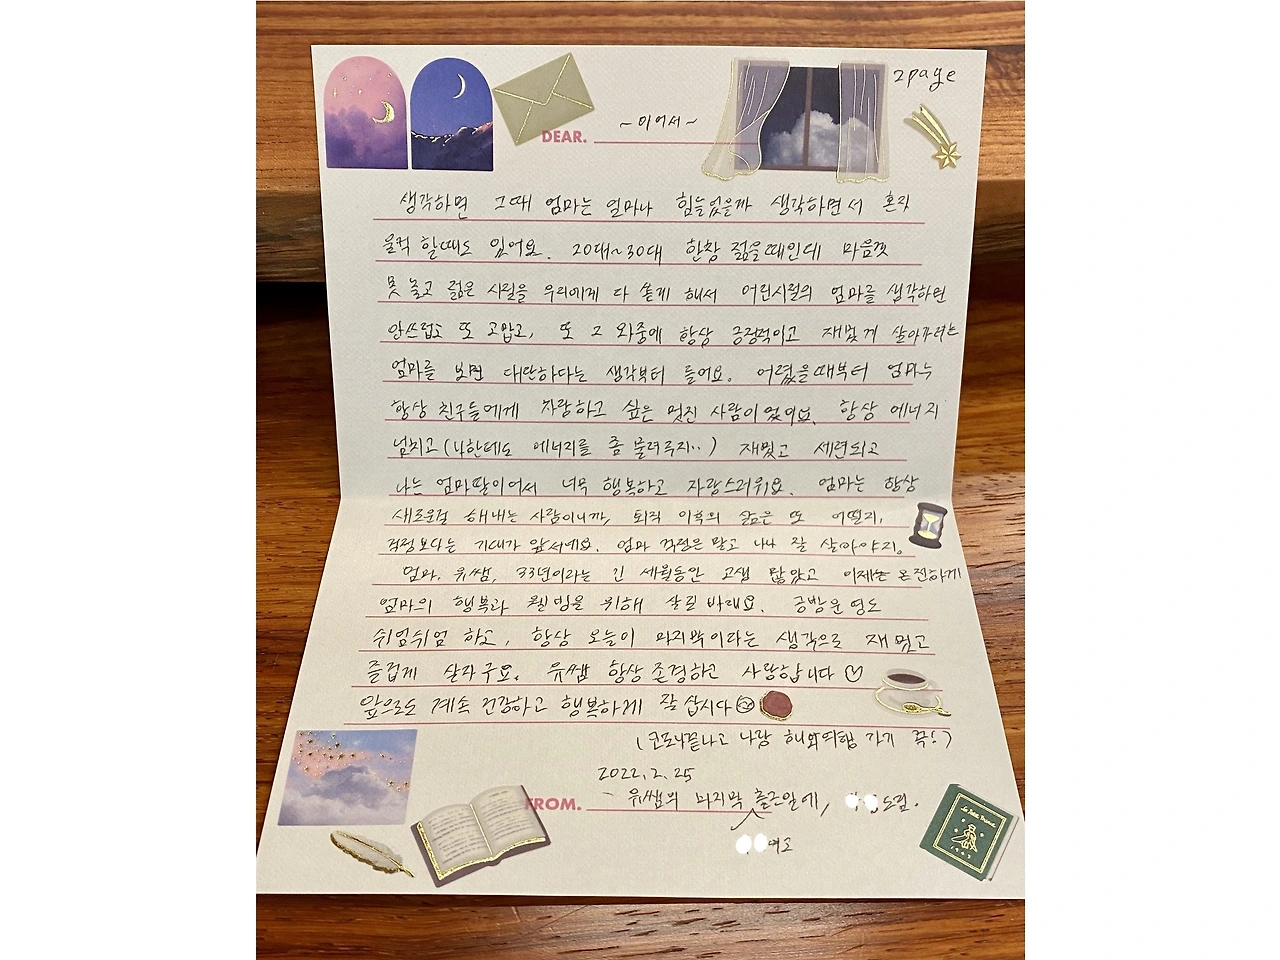 2page
DEAR. ~이어서~
생각하면 그때 엄마는 얼마나 힘들었을까 생각하면서 혼자
울컥 할때도 있어요. 20대~30대 한창 젊을때인데 마음껏
못 놀고 젊은 시절을 우리에게 다 쏟게 해서 어린시절의 엄마를 생각하면
안쓰럽고 또 고맙고, 또 그 와중에 항상 긍정적이고 재밌게 살아가려는
엄마를 보면 대단하다는 생각부터 들어요. 어렸을때부터 엄마는
항상 친구들에게 자랑하고 싶은 멋진 사람이었어요. 항상 에너지
넘치고 (나한테도 에너지를 좀 물려주지..) 재밌고 세련되고
나는 엄마딸이어서 너무 행복하고 자랑스러워요. 엄마는 항상
새로운걸 해내는 사람이니까, 퇴직 이후의 삶은 또 어떨지,
걱정보다는 기대가 앞서네요. 엄마 걱정은 말고 나나 잘 살아야지.
엄마, 유쌤, 33년이라는 긴 세월동안 고생 많았고 이제는 온전하게
엄마의 행복과 웰빙을 위해 살길 바래요. 공방운영도
쉬엄쉬엄 하고, 항상 오늘이 마지막이라는 생각으로 재밌고
즐겁게 살자구요. 유쌤 항상 존경하고 사랑합니다
앞으로도 계속 건강하고 행복하게 잘 삽시다
(코로나끝나고 나랑 해외여행 가기 꼭!)
2022. 2. 25
FROM. 유쌤의 마지막 출근일에, 도림.
여고
Le Petit Prince
1943